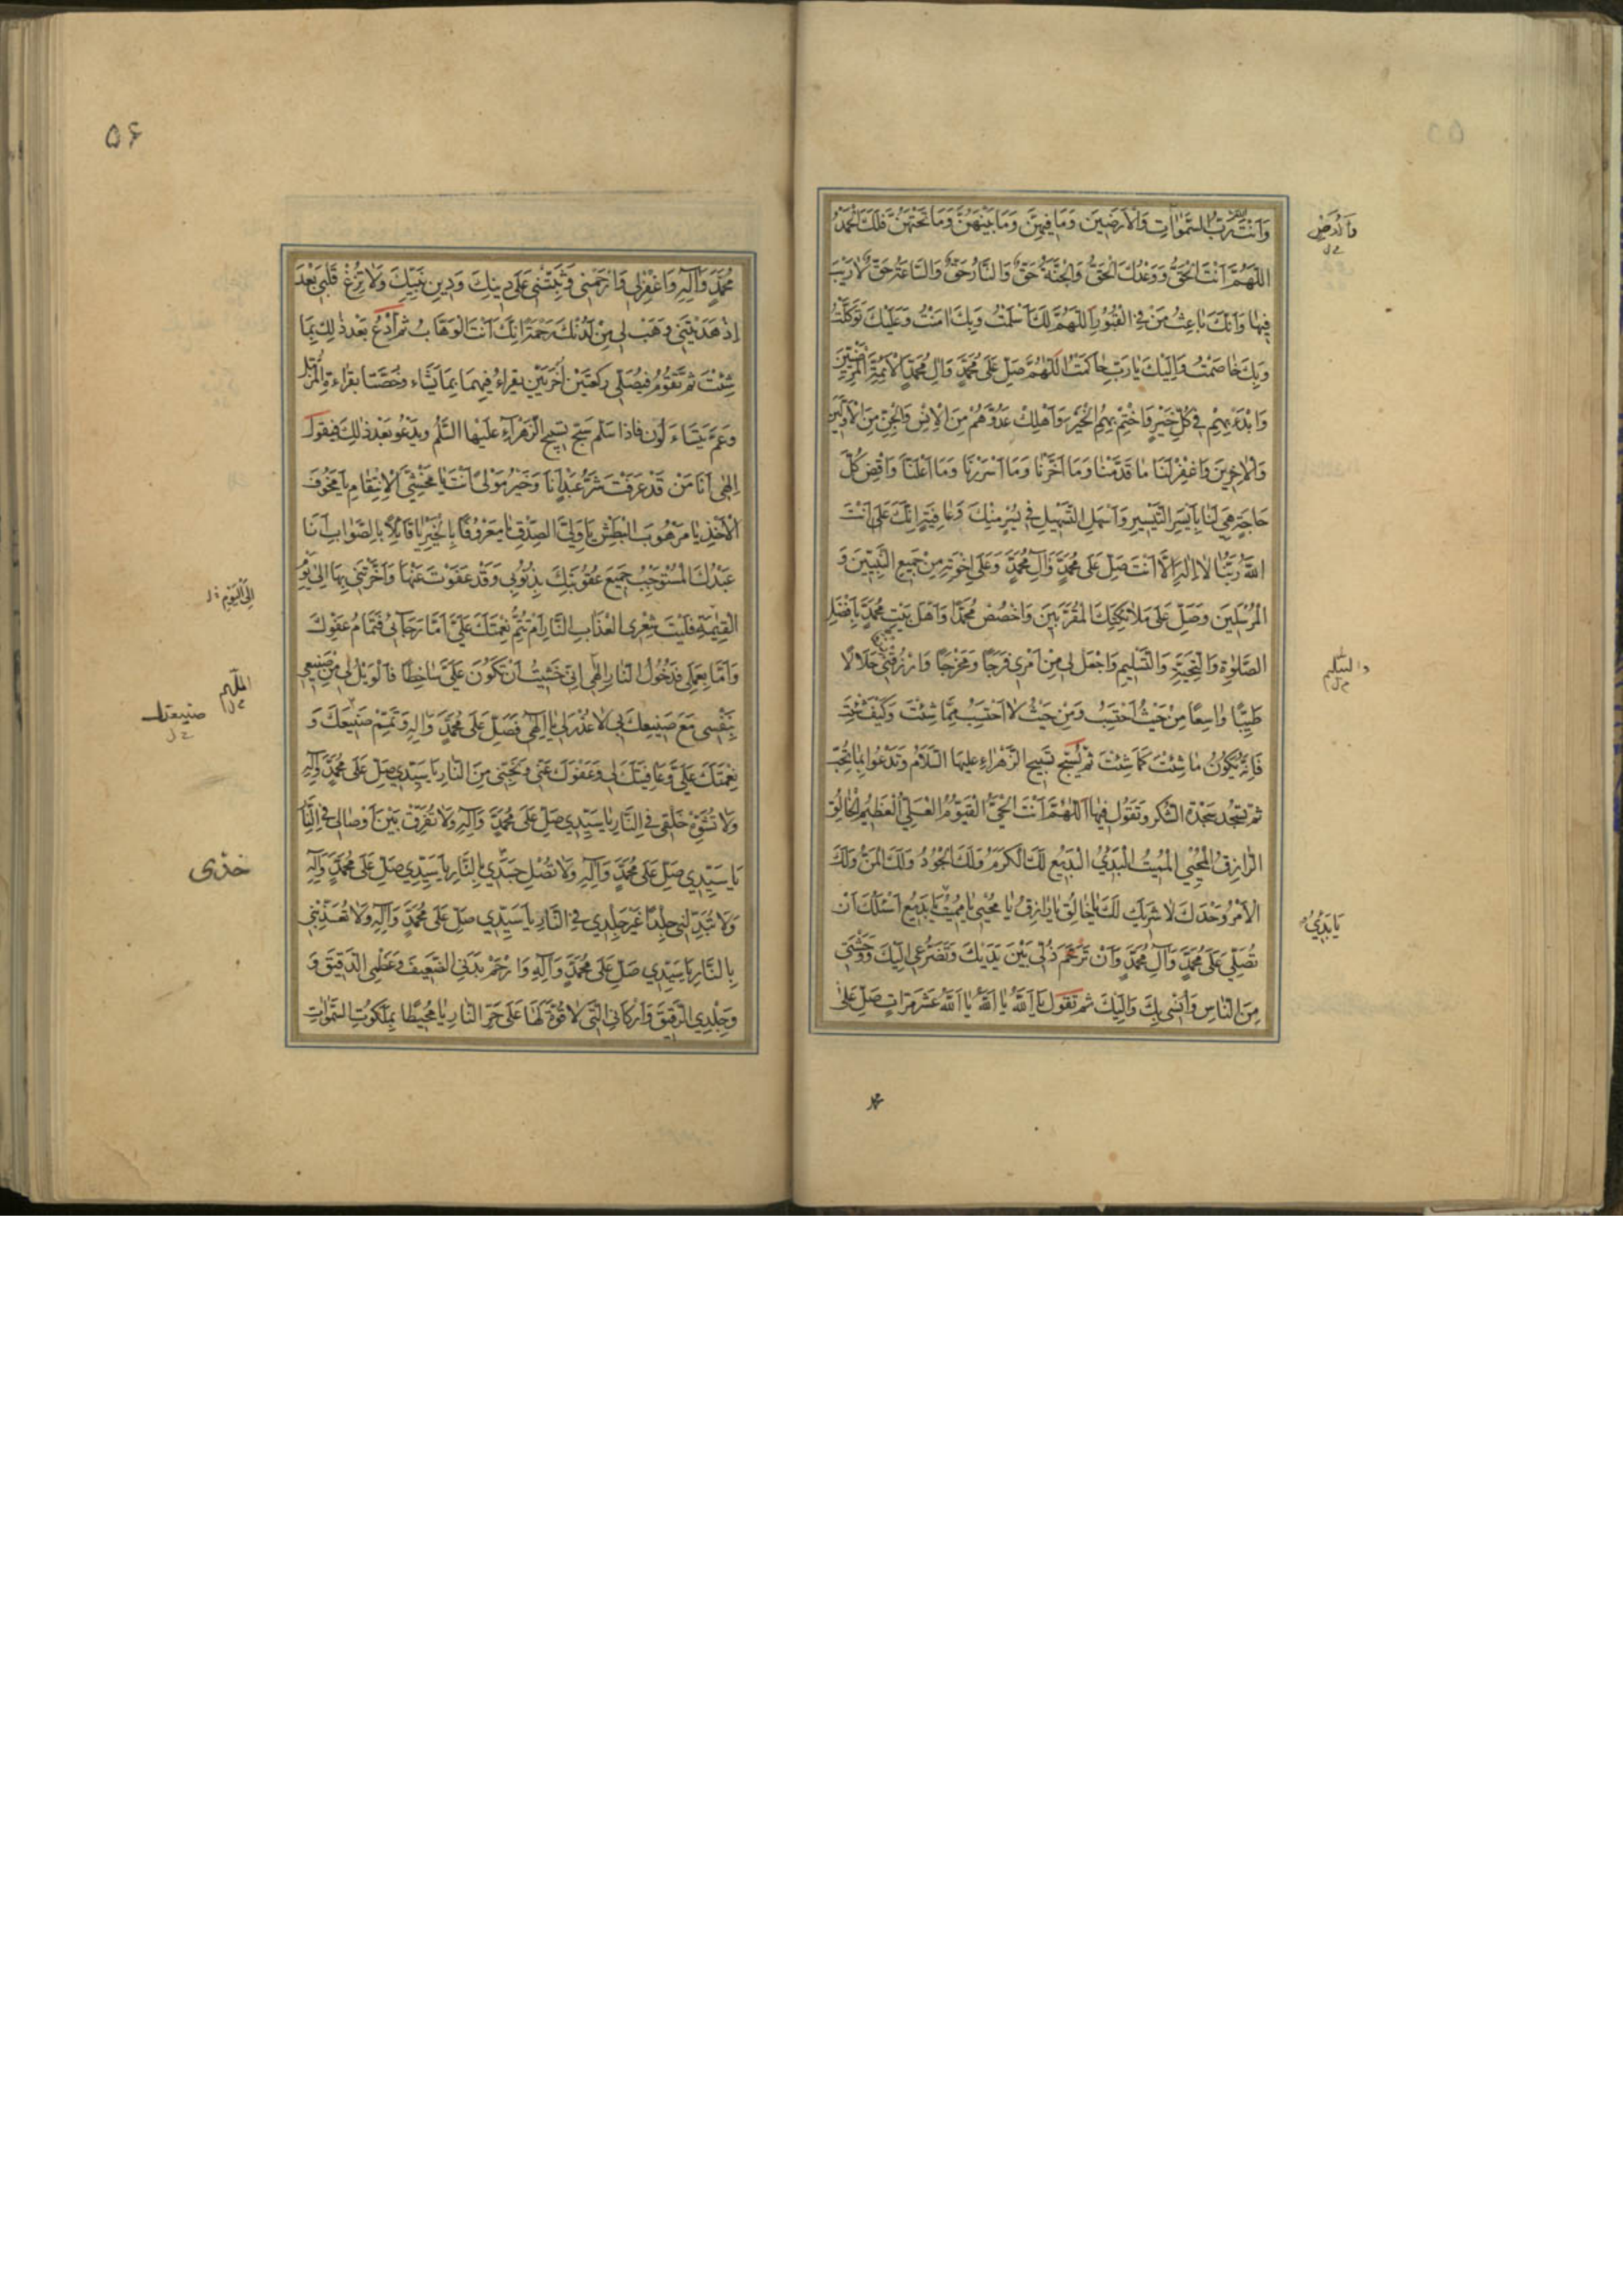 وَاَنْتَ اللّٰهُ رَبُّ السَّمٰوَاتِ وَالْاَرَضِيْنَ وَمَا فِيهِنَّ وَمَا بَيْنَهُنَّ وَمَا تَحْتَهُنَّ فَلَكَ الْحَمْدُ
وَالْاَرْضِ
خ ل
اللّٰهُمَّ اَنْتَ الْحَقُّ وَوَعْدُكَ الْحَقُّ وَالْجَنَّةُ حَقٌّ وَالنَّارُ حَقٌّ وَالسَّاعَةُ حَقٌّ لَارَيْبَ
فِيهَا وَاَنَّكَ بَاعِثُ مَنْ فِي الْقُبُورِ اَللّٰهُمَّ لَكَ اَسْلَمْتُ وَبِكَ اٰمَنْتُ وَعَلَيْكَ تَوَكَّلْتُ
وَبِكَ خَاصَمْتُ وَاِلَيْكَ يَا رَبِّ حَاكَمْتُ اَللّٰهُمَّ صَلِّ عَلٰى مُحَمَّدٍ وَاٰلِ مُحَمَّدٍ الْاَئِمَّةِ الْمَرْضِيِّيْنَ
وَابْدَءْ بِهِمْ فِي كُلِّ خَيْرٍ وَاخْتِمْ بِهِمُ الْخَيْرَ وَاَهْلِكْ عَدُوَّهُمْ مِنَ الْاِنْسِ وَالْجِنِّ مِنَ الْاَوَّلِيْنَ
وَالْاٰخِرِيْنَ وَاغْفِرْ لَنَا مَا قَدَّمْنَا وَمَا اَخَّرْنَا وَمَا اَسْرَرْنَا وَمَا اَعْلَنَّا وَاقْضِ كُلَّ
حَاجَةٍ هِيَ لَنَا بِاَيْسَرِ التَّيْسِيرِ وَاَسْهَلِ التَّسْهِيلِ فِي يُسْرٍ مِنْكَ وَعَافِيَةٍ اِنَّكَ عَلَى اَنْتَ
اللّٰهُ رَبُّنَا لَا اِلٰهَ اِلَّا اَنْتَ صَلِّ عَلَى مُحَمَّدٍ وَاٰلِ مُحَمَّدٍ وَعَلَى اِخْوَتِهِ مِنْ جَمِيعِ النَّبِيّيْنَ وَ
الْمُرْسَلِيْنَ وَصَلِّ عَلَى مَلَائِكَتِكَ الْمُقَرَّبِيْنَ وَاخْصُصْ مُحَمَّدًا وَاَهْلَ بَيْتِ مُحَمَّدٍ بِاَفْضَلِ
الصَّلٰوةِ وَالتَّحِيَّةِ وَالتَّسْلِيمِ وَاجْعَلْ لِي مِنْ اَمْرِي فَرَجًا وَمَخْرَجًا وَارْزُقْنِي حَلَالًا
والتسليم
خ ل
طَيِّبًا وَاسِعًا مِنْ حَيْثُ اَحْتَسِبُ وَمِنْ حَيْثُ لَا اَحْتَسِبُ مِمَّا شِئْتَ وَكَيْفَ شِئْتَ
فَاِنَّهُ يَكُونُ مَا شِئْتَ كَمَا شِئْتَ ثم يُسَبِّح تَسبيح الزَّهْرَاءِ عليها السَّلَامُ وَتَدْعُوا بِمَا تُحِبّ
ثم تسجد سَجْدَة الشُّكرِ وَتَقُولُ فِيهَا اَللّٰهُمَّ اَنْتَ الْحَيُّ الْقَيُّومُ الْعَلِيُّ الْعَظِيمُ الْخَالِقُ
الرَّازِقُ الْمُحْيِي الْمُمِيتُ الْمُبْدِئُ الْبَدِيعُ لَكَ الْكَرَمُ وَلَكَ الْجُودُ وَلَكَ الْمَنُّ وَلَكَ
الْاَمْرُ وَحْدَكَ لَا شَرِيكَ لَكَ يَا خَالِقُ يَا رَازِقُ يَا مُحْيِي يَا مُمِيتُ يَا بَدِيعُ اَسْئَلُكَ اَنْ
يَا بَدِئُ
تُصَلِّيَ عَلَى مُحَمَّدٍ وَاٰلِ مُحَمَّدٍ وَاَنْ تَرْحَمَ ذُلِّي بَيْنَ يَدَيْكَ وَتَضَرُّعِي اِلَيْكَ وَوَحْشَتِي
مِنَ النَّاسِ وَاُنْسِي بِكَ وَاِلَيْكَ ثم تَقول يَا اَللّٰهُ يَا اَللّٰهُ يَا اَللّٰهُ عَشرَ مَرّاتٍ صَلِّ عَلَى
محمد
۵۶
مُحَمَّدٍ وَاٰلِهِ وَاغْفِرْ لِي وَارْحَمْنِي وَثَبِّتْنِي عَلَى دِينِكَ وَدِينِ نَبِيِّكَ وَلَا تُزِغْ قَلْبِي بَعْدَ
اِذْ هَدَيْتَنِي وَهَبْ لِي مِنْ لَدُنْكَ رَحْمَةً اِنَّكَ اَنْتَ الْوَهَّابُ ثم اُدْعُ بَعْدَ ذٰلِكَ بِمَا
شِئْتَ ثم تَقُومُ فَيُصَلِّي رَكعَتَيْنِ اُخْرَيَيْنِ يقراءُ فِيهِمَا بِمَا يَشَاء وَخُصَّتا بقراءةِ الْمُزَّمِّل
وَعَمَّ يَتَسَاءَلُون فاذا سَلَّم سَبَّح تسبيح الزّهْرَاءِ عَلَيْهَا السَّلٰمُ وَيَدْعُو بَعْدَ ذٰلِكَ فيقول
اِلٰهِي اَنَا مَنْ قَدْ عَرَفْتَ شَرُّ عَبْدٍ اَنَا وَخَيْرُ مَوْلًى اَنْتَ يَا مَخْشِيَّ الْاِنْتِقَامِ يَا مَخُوفَ
الْاَخْذِ يَا مَرْهُوبَ الْبَطْشِ يَا وَلِيَّ الصِّدْقِ يَا مَعْرُوفًا بِالْخَيْرِ يَا قَائِلًا بِالصَّوَابِ اَنَا
عَبْدُكَ الْمُسْتَوْجِبُ جَمِيعَ عُقُوبَتِكَ بِذُنُوبِي وَقَدْ عَفَوْتَ عَنْهَا وَاَخَّرْتَنِي بِهَا اِلَى يَوْمِ
اِلَى الْيَوْمِ
الْقِيٰمَةِ فَلَيْتَ شِعْرِي الْعَذَابِ النَّارِ اَمْ تُتِمُّ نِعْمَتَكَ عَلَيَّ اَمَّا رَجَائِي فَتَمَامُ عَفْوِكَ
وَاَمَّا بِعَمَلِي فَدُخُولُ النَّارِ اِلٰهِي اِنِّي خَشِيتُ اَنْ تَكُونَ عَلَيَّ سَاخِطًا فَالْوَيْلُ لِي مِنْ صَنِيعِي
اللّهم
خ ل
بِنَفْسِي مَعَ صَنِيعِكَ بِي لَا عُذْرَ لِي يَا اِلٰهِي فَصَلِّ عَلَى مُحَمَّدٍ وَاٰلِهِ وَتَمِّمْ صَنِيعَكَ وَ
صنيعتك
خ ل
نِعْمَتَكَ عَلَيَّ وَعَافِيَتَكَ لِي وَعَفْوَكَ عَنِّي وَنَجِّنِي مِنَ النَّارِ يَا سَيِّدِي صَلِّ عَلَى مُحَمَّدٍ وَاٰلِهِ
وَلَا تُشَوِّهْ خَلْقِي فِي النَّارِ يَا سَيِّدِي صَلِّ عَلَى مُحَمَّدٍ وَاٰلِهِ وَلَا تُفَرِّقْ بَيْنَ اَوْصَالِي فِي النَّارِ
يَا سَيِّدِي صَلِّ عَلَى مُحَمَّدٍ وَاٰلِهِ وَلَا تُصْلِ جَسَدِي بِالنَّارِ يَا سَيِّدِي صَلِّ عَلَى مُحَمَّدٍ وَاٰلِهِ
خدّى
وَلَا تُبَدِّلْنِي جِلْدًا غَيْرَ جِلْدِي فِي النَّارِ يَا سَيِّدِي صَلِّ عَلَى مُحَمَّدٍ وَاٰلِهِ وَلَا تُعَذِّبْنِي
بِالنَّارِ يَا سَيِّدِي صَلِّ عَلَى مُحَمَّدٍ وَاٰلِهِ وَارْحَمْ بَدَنِي الضَّعِيفَ وَعَظْمِي الدَّقِيقَ وَ
وَجِلْدِي الرَّقِيقَ وَاَرْكَانِي الَّتِي لَا قُوَّةَ لَهَا عَلَى حَرِّ النَّارِ يَا مُحِيطًا بِمَلَكُوتِ السَّمٰوَاتِ